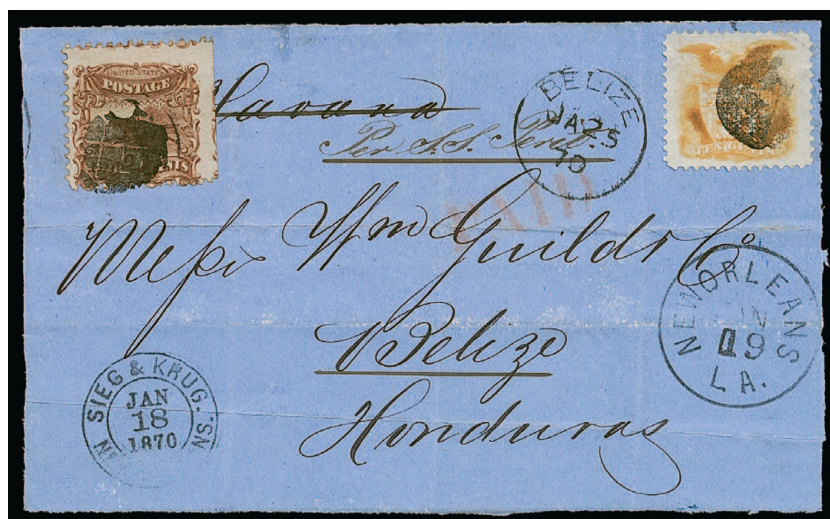 UNITED STATES
POSTAGE
Havana
Per S.S. Perit
BELIZE
JA 25
70
Messrs Wm Guild & Co
Belize
Honduras
NEW ORLEANS
19
LA.
SIEG & KRUG.
JAN
18
1870